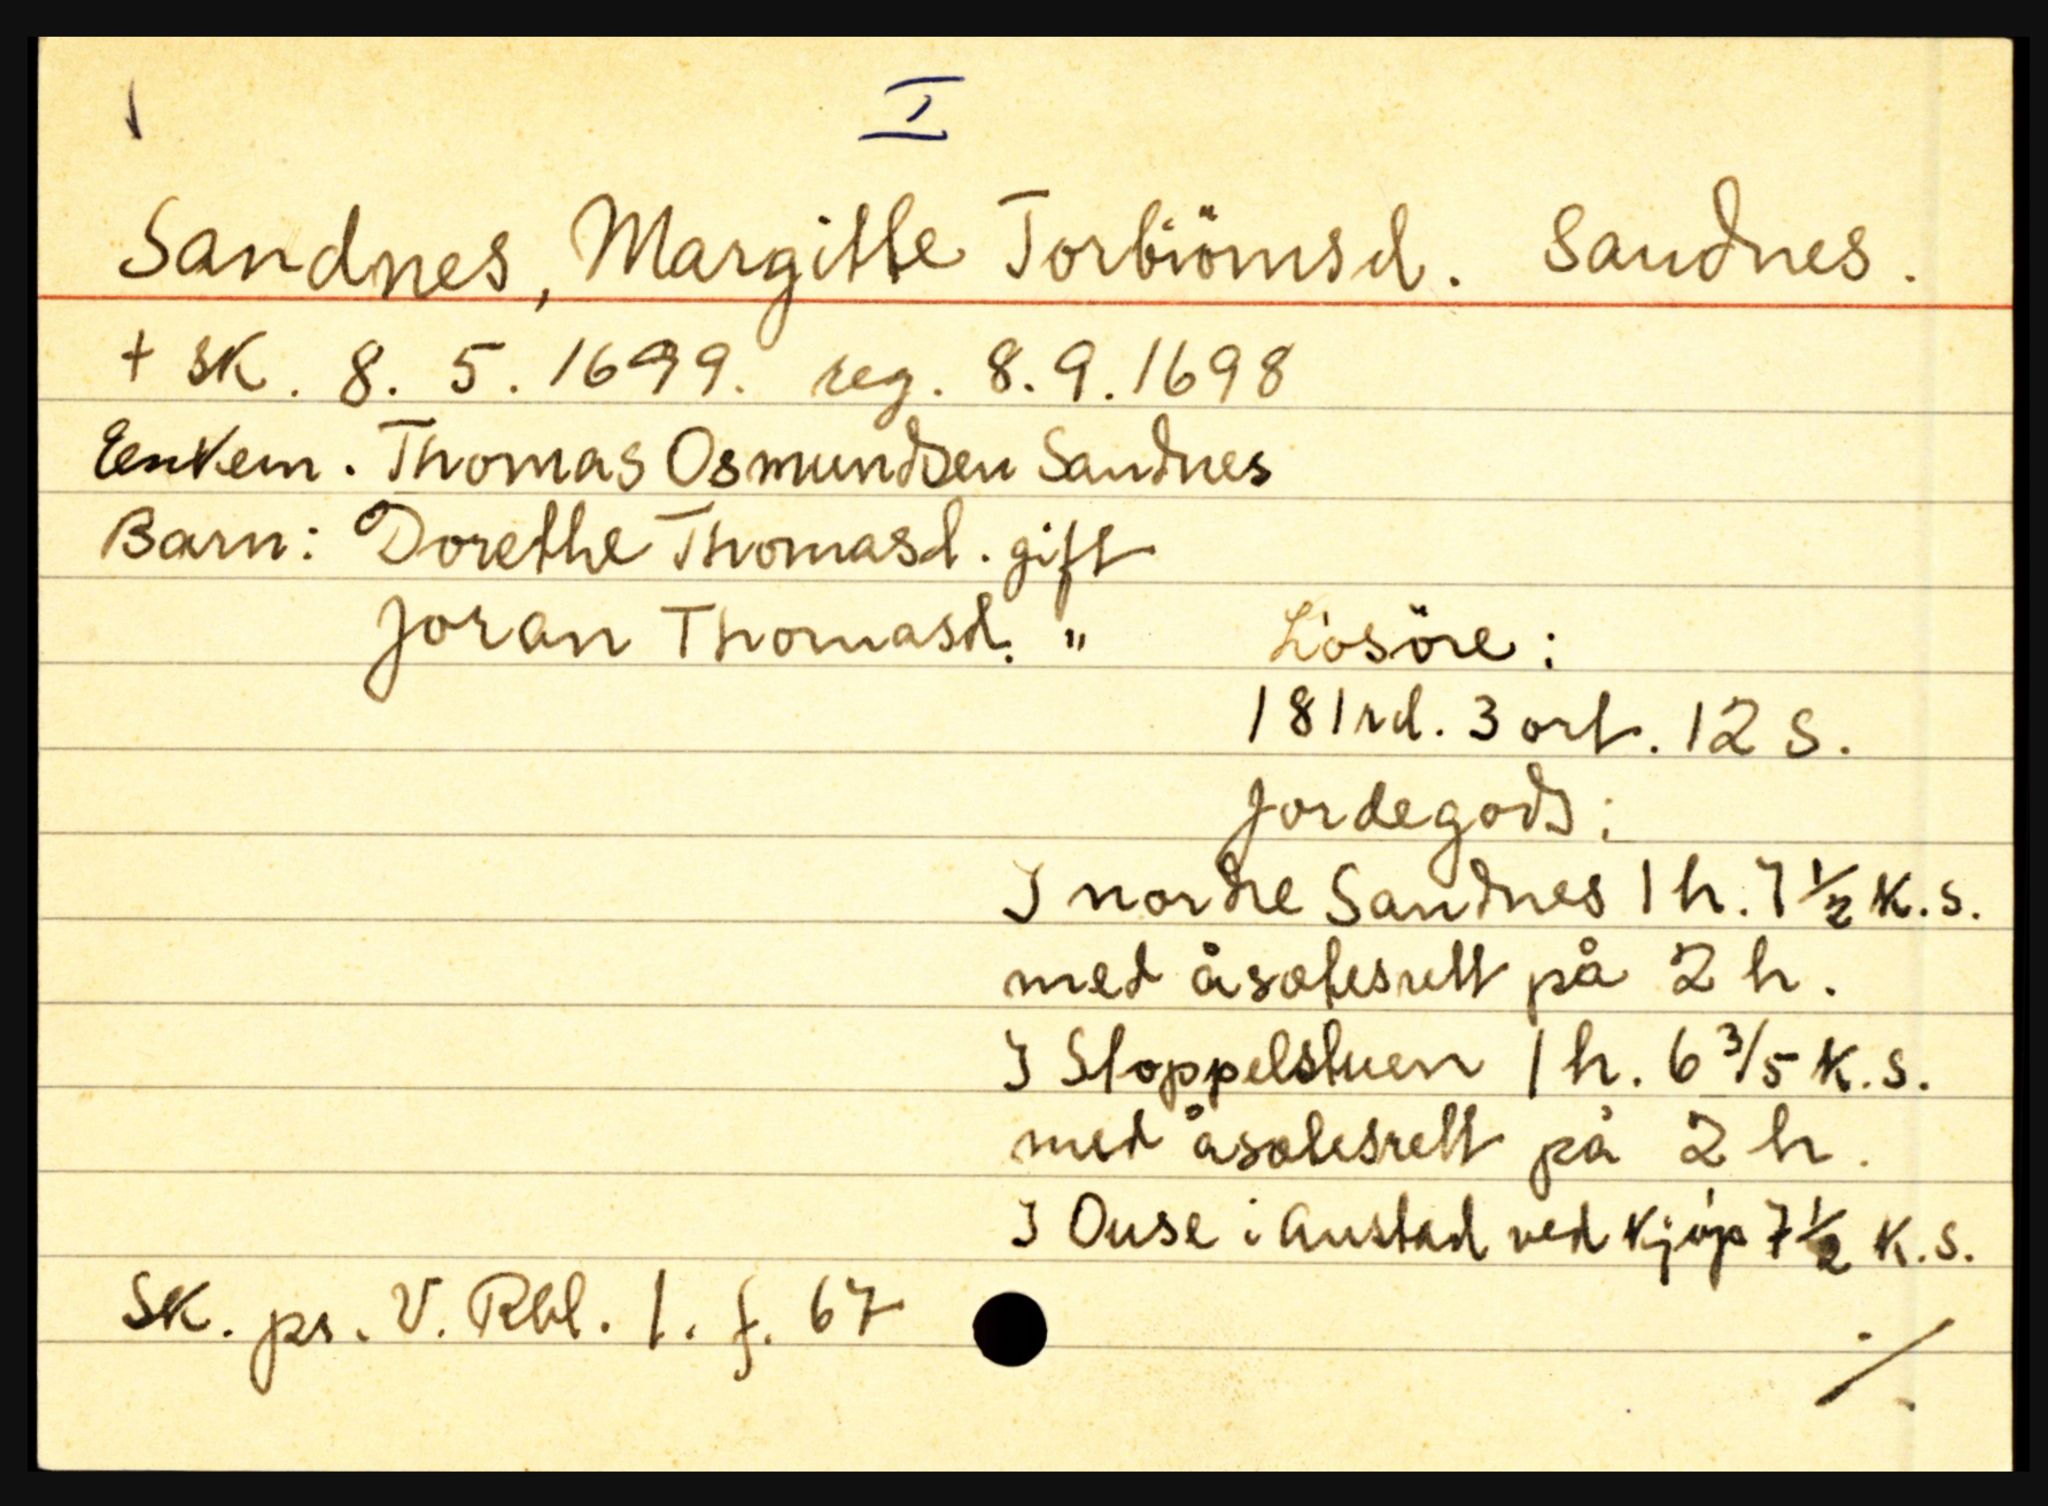 I
Sandnes, Margitte Torbiörnsd. Sandnes.
+ sk. 8. 5. 1699. reg. 8.9.1698
Enkem. Thomas Osmundsen Sandnes
Barn: Dorethe Thomasd. gift
Joran Thomasd. "
Lösöre:
181 rd. 3 ort. 12 s.
Jordegods:
I nordre Sandnes 1 h. 7 1/2 k.s.
med åsotesrett på 2 h.
I Stoppelstuen 1 h. 6 3/5 k.s.
med åsotesrett på 2 h.
I Ouse i Austad ved kjöp 7 1/2 k.s.
Sk. pr. V. Rbl. 1. f. 67
./.